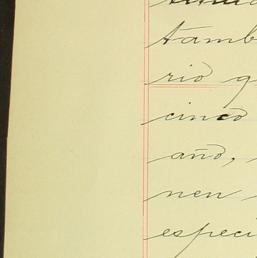 tamb
rio q
cinco
año,
nen
especi